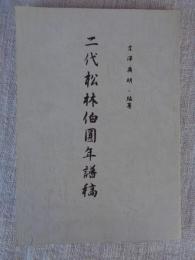 二代松林伯圓年譜稿
澤典明・編著